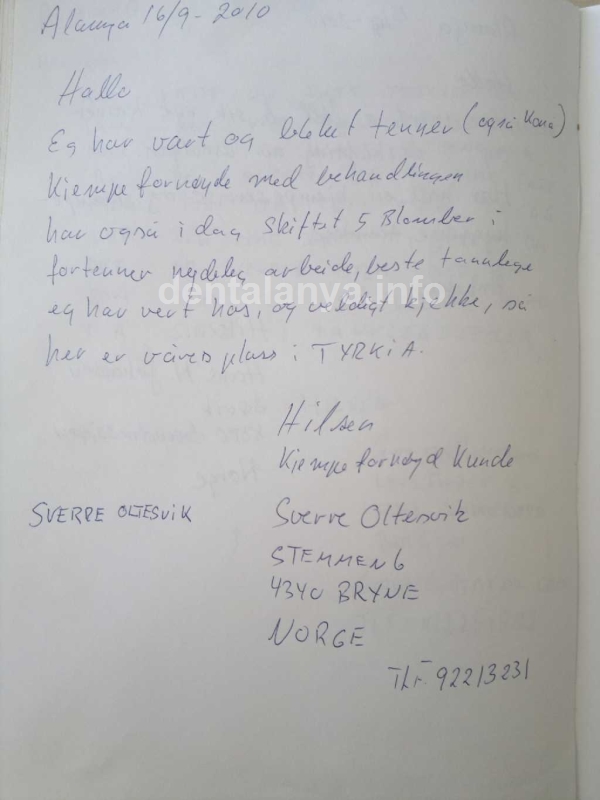 Alanya 16/9-2010
Hallo
Eg har vart og bleket tenner (også Kona).
Kjempe fornøyde med behandlingen
har også i dag skiftet 5 Blomber i
fortenner nydeleg arbeide, beste tannlege
eg har vert hos, og veldigt kjekke, så
her er våres plass i TYRKIA.
dentalanya.info
Hilsen
Kjempe fornøyd Kunde
SVERRE OLTESVIK
Sverre Oltesvik
STEMMEN 6
4340 BRYNE
NORGE
Tlf. 92213231